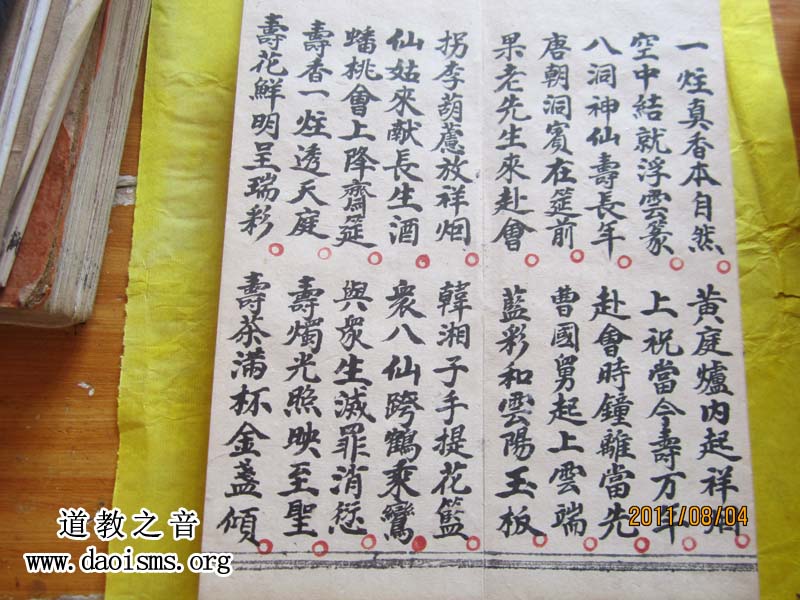 一炷真香本自然 黃庭爐内起祥烟
空中結就浮雲篆 上祝當今壽万年
八洞神仙壽長年 赴會時鐘離當先
唐朝洞賓在筵前 曹國舅起上雲端
果老先生來赴會 藍彩和雲陽玉板
拐李葫蘆放祥烟 韓湘子手提花籃
仙姑來献長生酒 衆八仙跨鶴乘鸞
蟠桃會上降齋筵 與衆生滅罪消愆
壽香一炷透天庭 壽燭光照映至聖
壽花鮮明呈瑞彩 壽茶滿杯金盞傾
2011/08/04
道教之音
www.daoisms.org